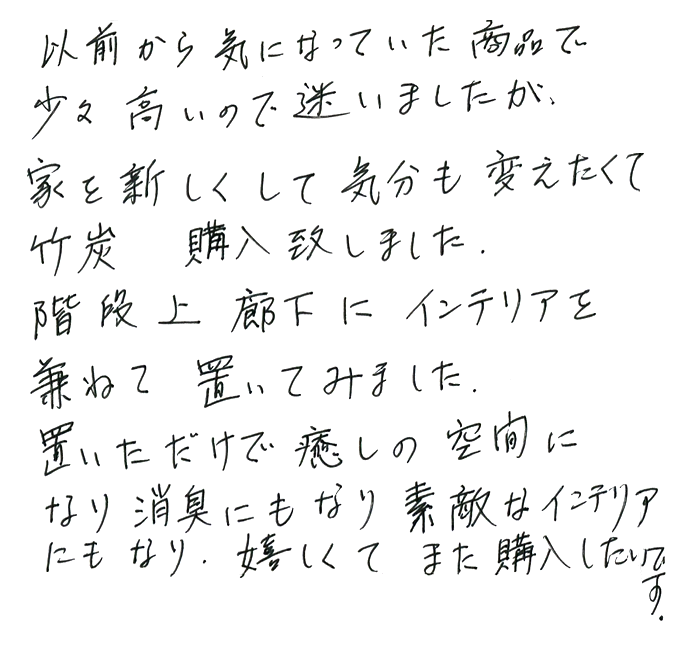 以前から気になっていた商品で
少々高いので迷いましたが、
家を新しくして気分も変えたくて
竹炭 購入致しました.
階段上廊下にインテリアを
兼ねて置いてみました.
置いただけで癒しの空間に
なり消臭にもなり素敵なインテリア
にもなり.嬉しくてまた購入したいです.